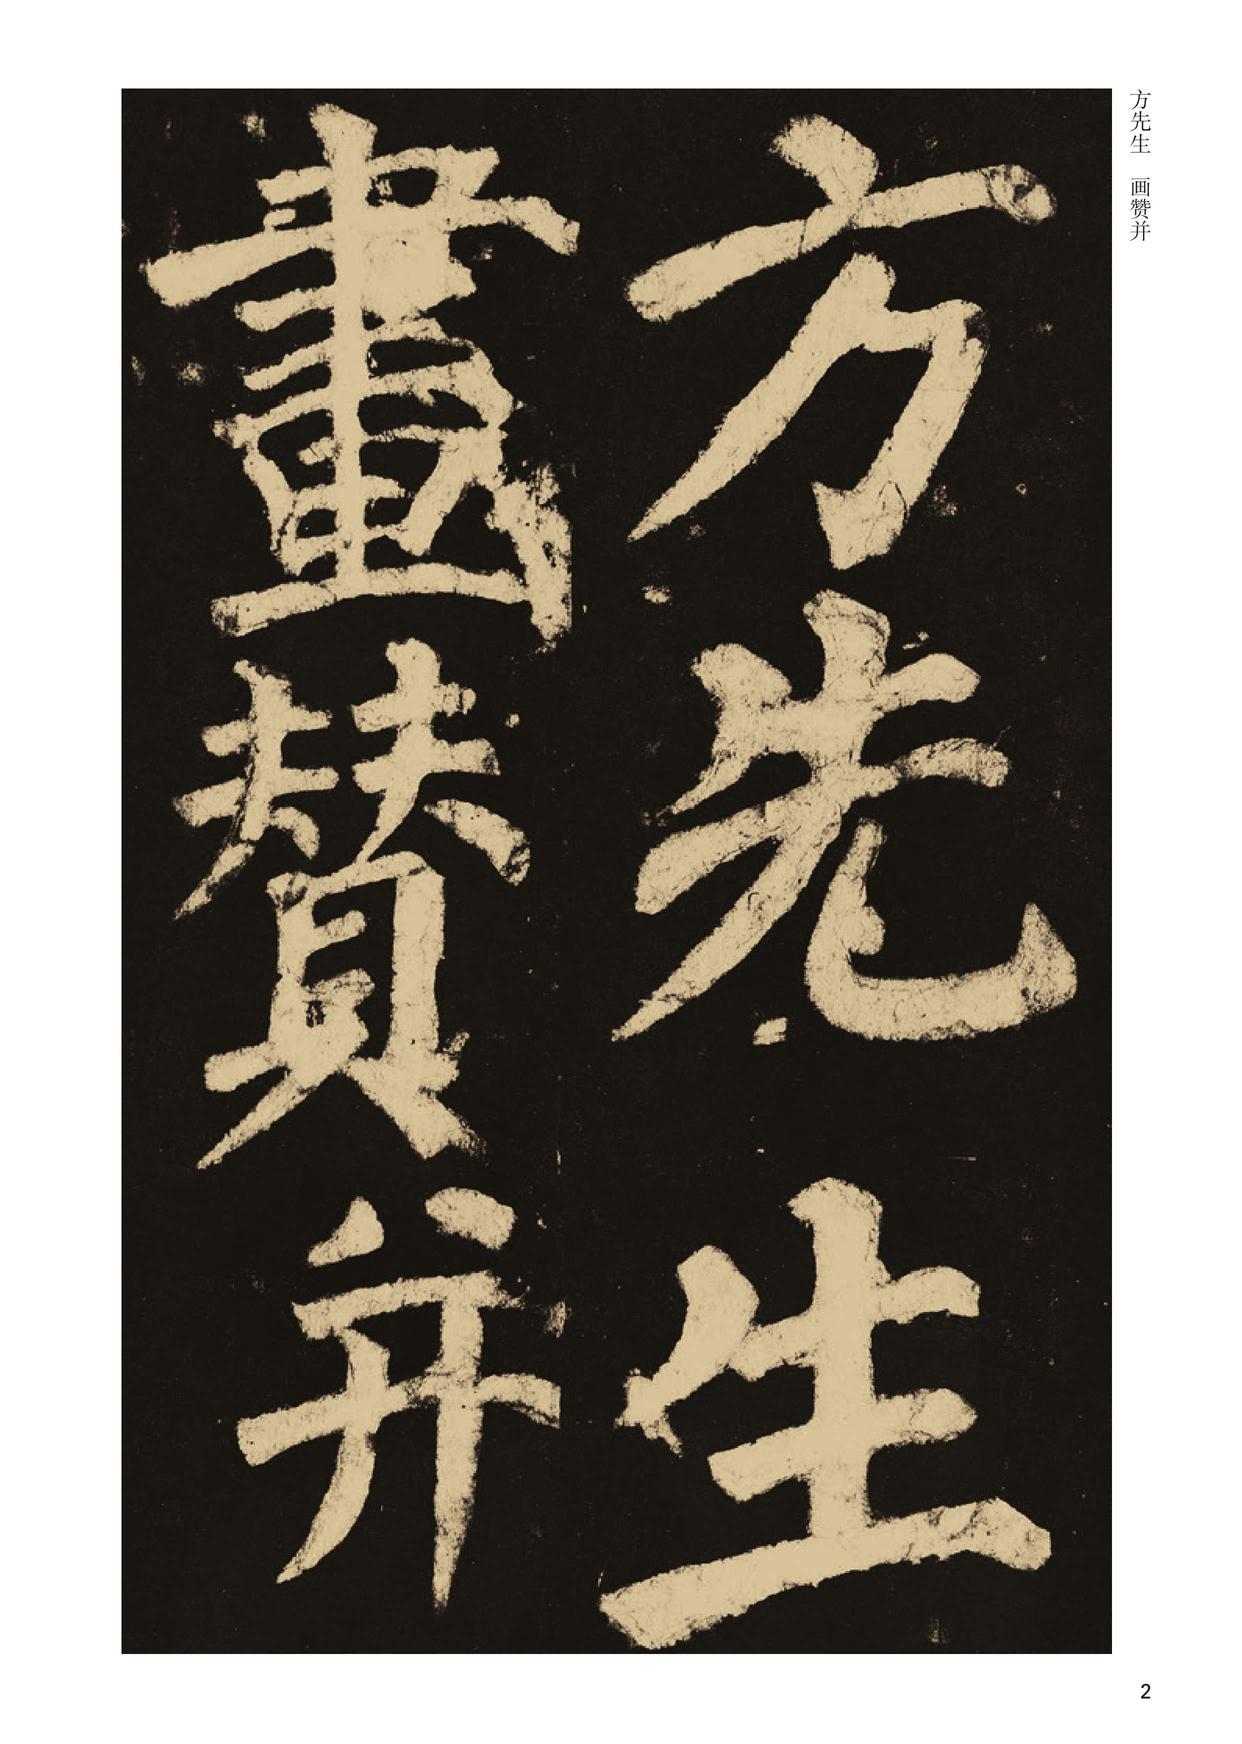 方先生
畫賛并
方先生 画赞并
2